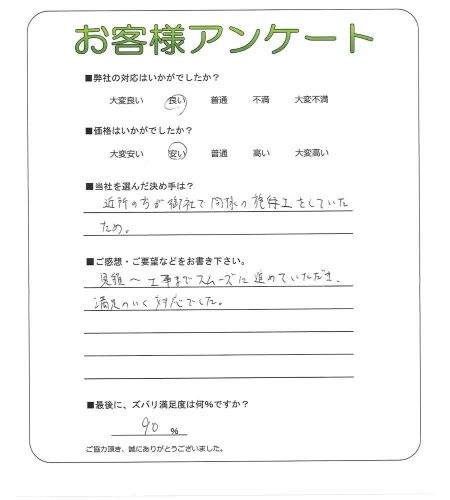 お客様アンケート
■弊社の対応はいかがでしたか？
大変良い 良い 普通 不満 大変不満
■価格はいかがでしたか？
大変安い 安い 普通 高い 大変高い
■当社を選んだ決め手は？
近所の方が御社で同様の施工をしていた
ため。
■ご感想・ご要望などをお書き下さい。
見積〜工事までスムーズに進めていただき、
満足のいく対応でした。
■最後に、ズバリ満足度は何％ですか？
90 %
ご協力頂き、誠にありがとうございました。